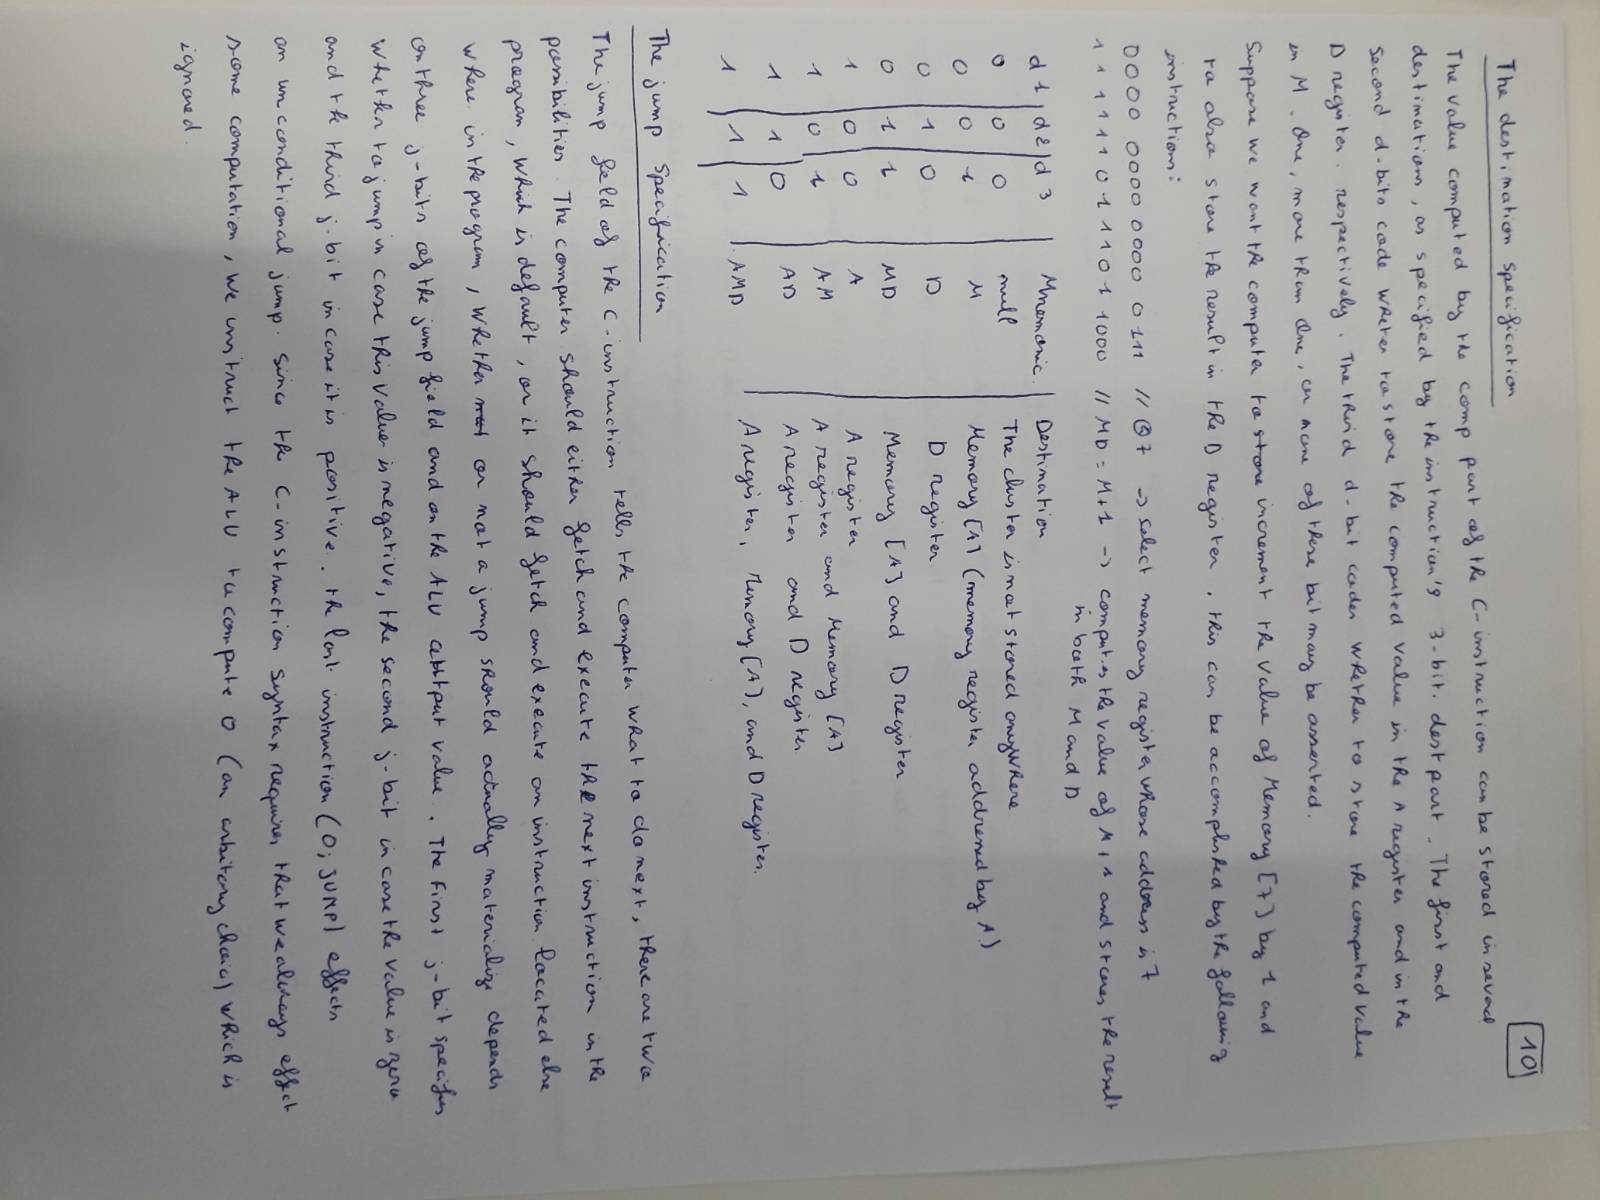 10
The destination specification
The value computed by the comp part of the C-instruction can be stored in several
destinations, as specified by the instruction's 3-bit. dest part. The first and
second d-bits code wheter to store the computed value in the A register and in the
D register. respectively. The third d-bit codes whether to store the computed value
in M. One, more than one, or none of these bit may be asserted.
Suppose we want the computer to store increment the value of Memory [7] by 1 and
to also store the result in the D register, this can be accomplished by the following
instructions:
0000 0000 0000 0111 // @7 -> select memory register whose address is 7
1 1 1 1 1 1 0 1 1 1 0 1 1000 // MD = M+1 -> computes the value of M+1 and stores the result
in both M and D
d1 d2 d3 Mnemonic. Destination
0 0 0 null The cluster is not stored anywhere
0 0 1 M Memory [A] (memory register addressed by A)
0 1 0 D D register.
0 1 1 MD Memory [A] and D register
1 0 0 A A register
1 0 1 AM A register and Memory [A]
1 1 0 AD A register and D register
1 1 1 AMD A register, Memory [A], and D register.
The jump specification
The jump field of the C-instruction tells the computer what to do next, there are two
possibilities. The computer should either fetch and execute the next instruction in the
program, which is default, or it should fetch and execute an instruction located else
where in the program, whether or not a jump should actually materialize depends
on three j-bits of the jump field and on the ALU output value. The first j-bit specifies
whether to jump in case this value is negative, the second j-bit in case the value is zero
and the third j-bit in case it is positive. the last instruction (0; JUMP) effects
an unconditional jump. Since the C-instruction syntax requires that we always effect
some computation, we instruct the ALU to compute 0 (an arbitrary choice) which is
ignored.